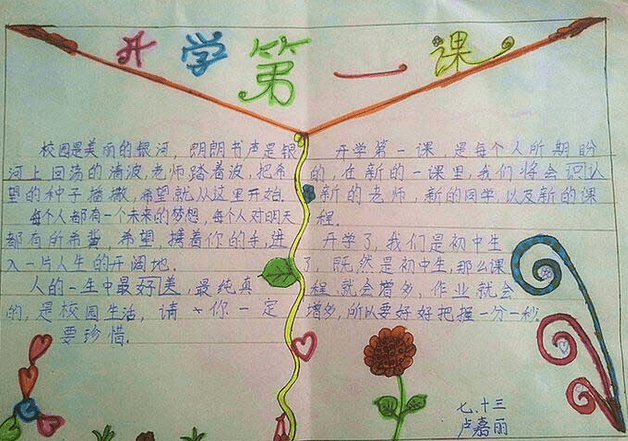 开学第一课
校园是美丽的银河，朗朗书声是银
河上回荡的清波，老师踏着波，把希
望的种子播撒，希望就从这里开始.
每个人都有一个未来的梦想，每个人对明天
都有所希望，希望，携着你的手，进
入一片人生的开阔地.
人的一生中最好美，最纯真
的，是校园生活，请你一定
要珍惜.
开学第一课，是每个人所期盼
的，在新的一课里，我们将会识认
新的老师，新的同学以及新的课
程.
开学了，我们是初中生
了，既然是初中生，那么课
程就会增多，作业就会
增多，所以要好好把握一分一秒.
七.十三
卢嘉丽